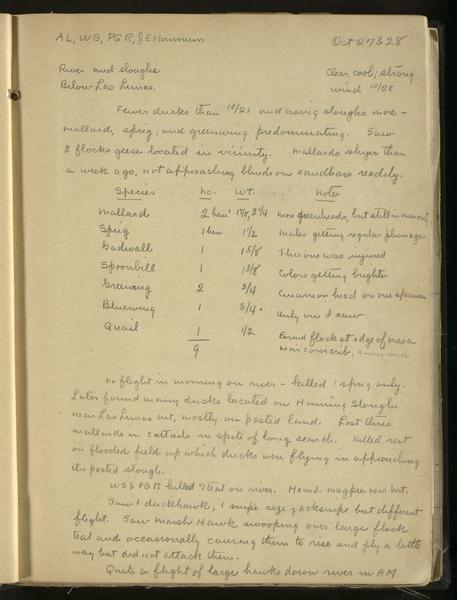 AL, WS, PGR, J E Hannum Oct 27 & 28
River and sloughs Clear, cool; strong
Below Los Lunas. wind 10/28
Fewer ducks than 10/21 and using sloughs more -
mallard, sprig, and greenwing predominating. Saw
2 flocks geese located in vicinity. Mallards shyer than
a week ago, not approaching blinds on sandbars readily.
Species No. WT. Notes
Mallard 2 hens 2 1/4 more greenheads, but still in minority
Sprig 1 hen 1 1/2 Males getting regular plumage
Gadwall 1 1 5/8 This one was injured
Spoonbill 1 1 3/8 Colors getting brighter
Greenwing 2 3/4 Cinnamon head on one specimen
Bluewing 1 3/4 Only one I saw
Quail 1 1/2 Found flock at edge of mesa
9 near corncrib, Huning ranch
No flight in morning on river - killed 1 sprig only.
Later found many ducks located on Huning Slough
near Los Lunas mt, mostly on posted land. Lost three
mallards in cattails in spite of long search. Killed rest
on flooded field up which ducks were flying in approaching
the posted slough.
WS & PGR killed 7 teal on river. Heard magpie near mt.
Saw 1 duckhawk, 1 snipe size jacksnipe but different
flight. Saw Marsh Hawk swooping over large flock
teal and occasionally causing them to rise and fly a little
way but did not attack them.
Quite a flight of large hawks down river in AM